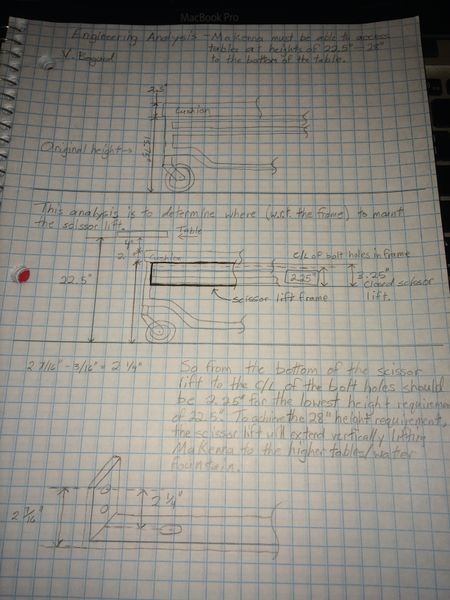 MacBook Pro
Engineering Analysis - MaKenna must be able to access
tables at heights of 22.5" - 28"
to the bottom of the table.
V. Bogard
2.5"
Cushion
Original height →
This analysis is to determine where (w.r.t. the frame) to mount
the scissor lift.
Table
4"
2"
Cushion
C/L of bolt holes in frame
22.5"
2.25"
3.25"
closed scissor
lift.
scissor lift frame
2 7/16" - 3/16" = 2 1/4"
So from the bottom of the scissor
lift to the C/L of the bolt holes should
be 2.25" for the lowest height requirement
of 22.5". To achieve the 28" height requirement,
the scissor lift will extend vertically lifting
MaKenna to the higher tables/water
fountain.
2 1/4"
2 7/16"